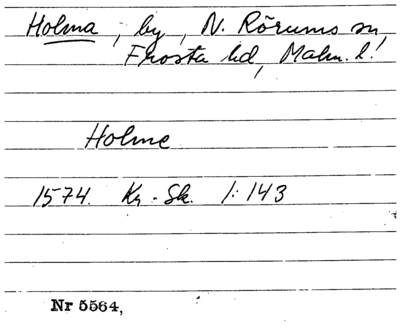 Holma, by, N. Rõrums sn,
Frosta hd, Malm. l.
Holme
1574. Kr. Sk. 1: 143
Nr 5564,